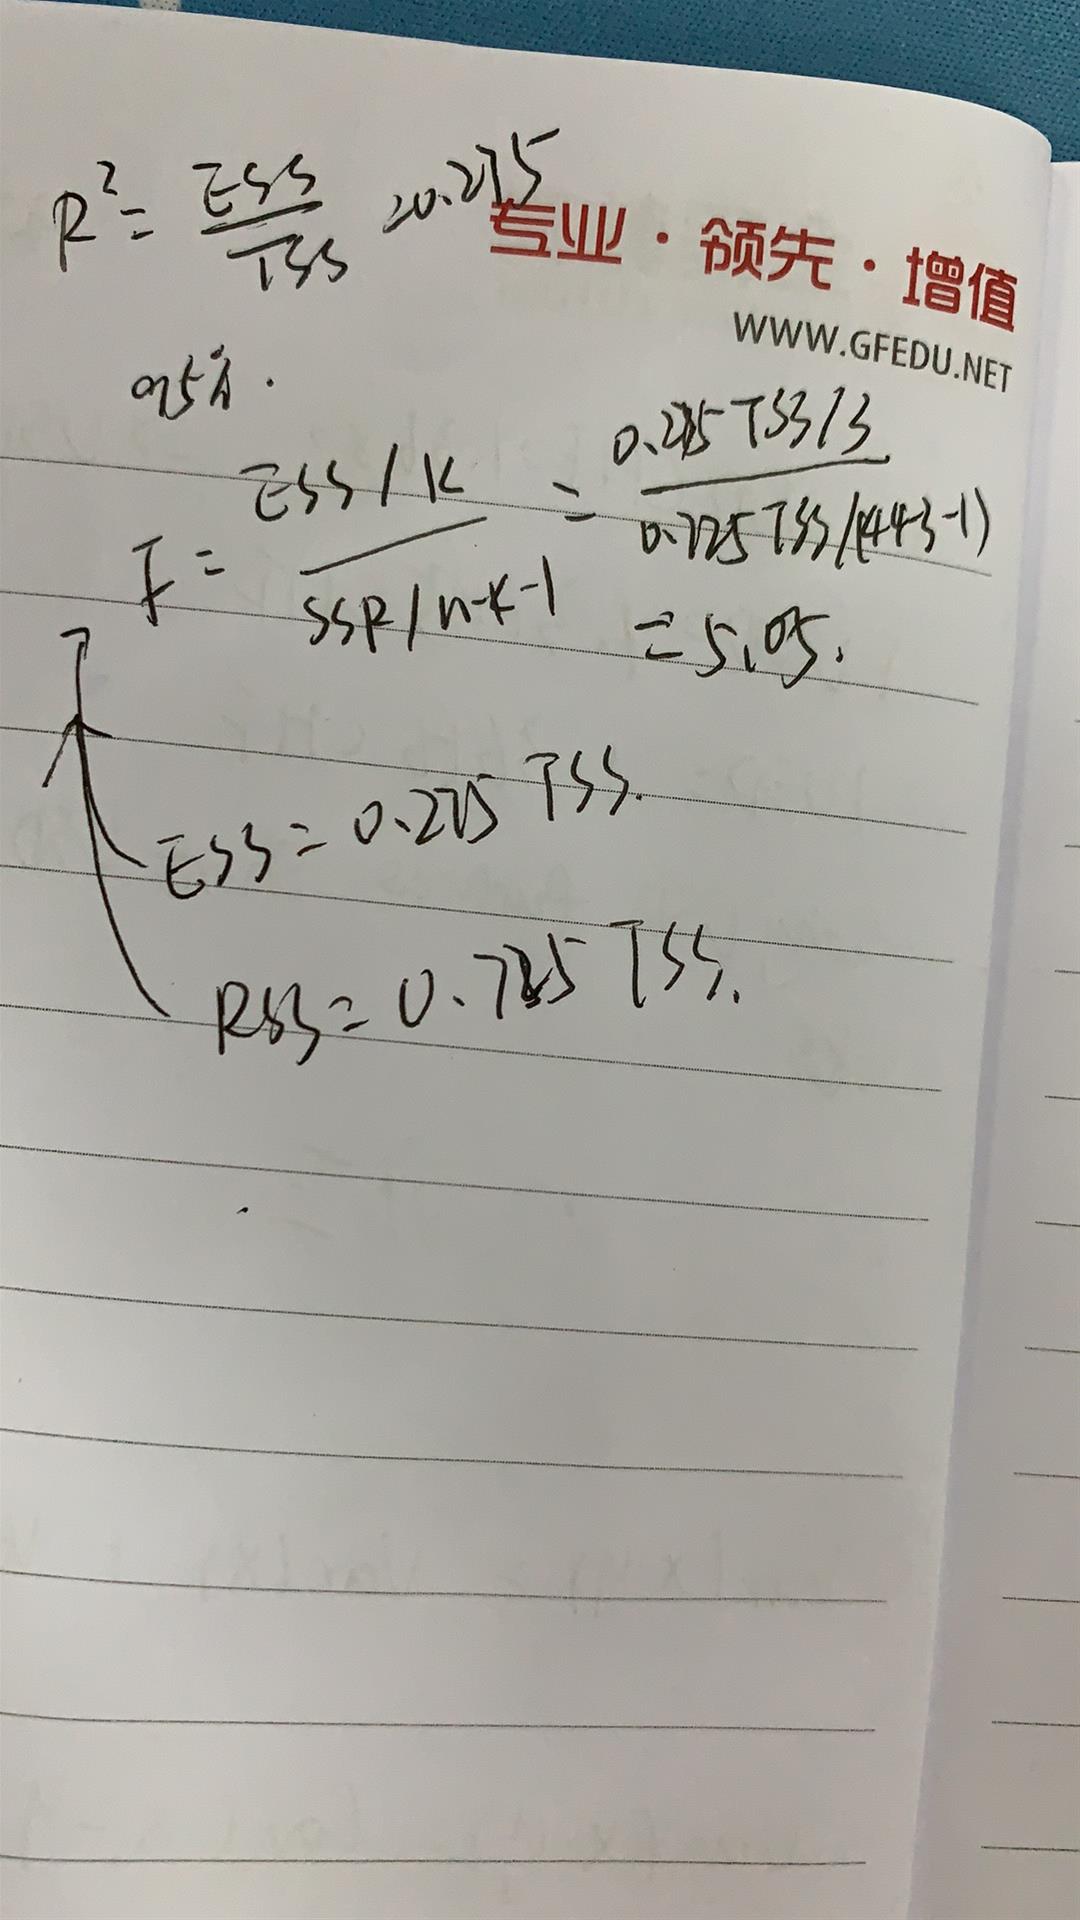 R² = ESS / TSS = 0.275
专业·领先·增值
WWW.GFEDU.NET
F = ESS/K / SSR/n-k-1 = 0.275 TSS/3 / 0.725 TSS/(44-3-1)
= 5.05.
ESS = 0.275 TSS.
RSS = 0.725 TSS.